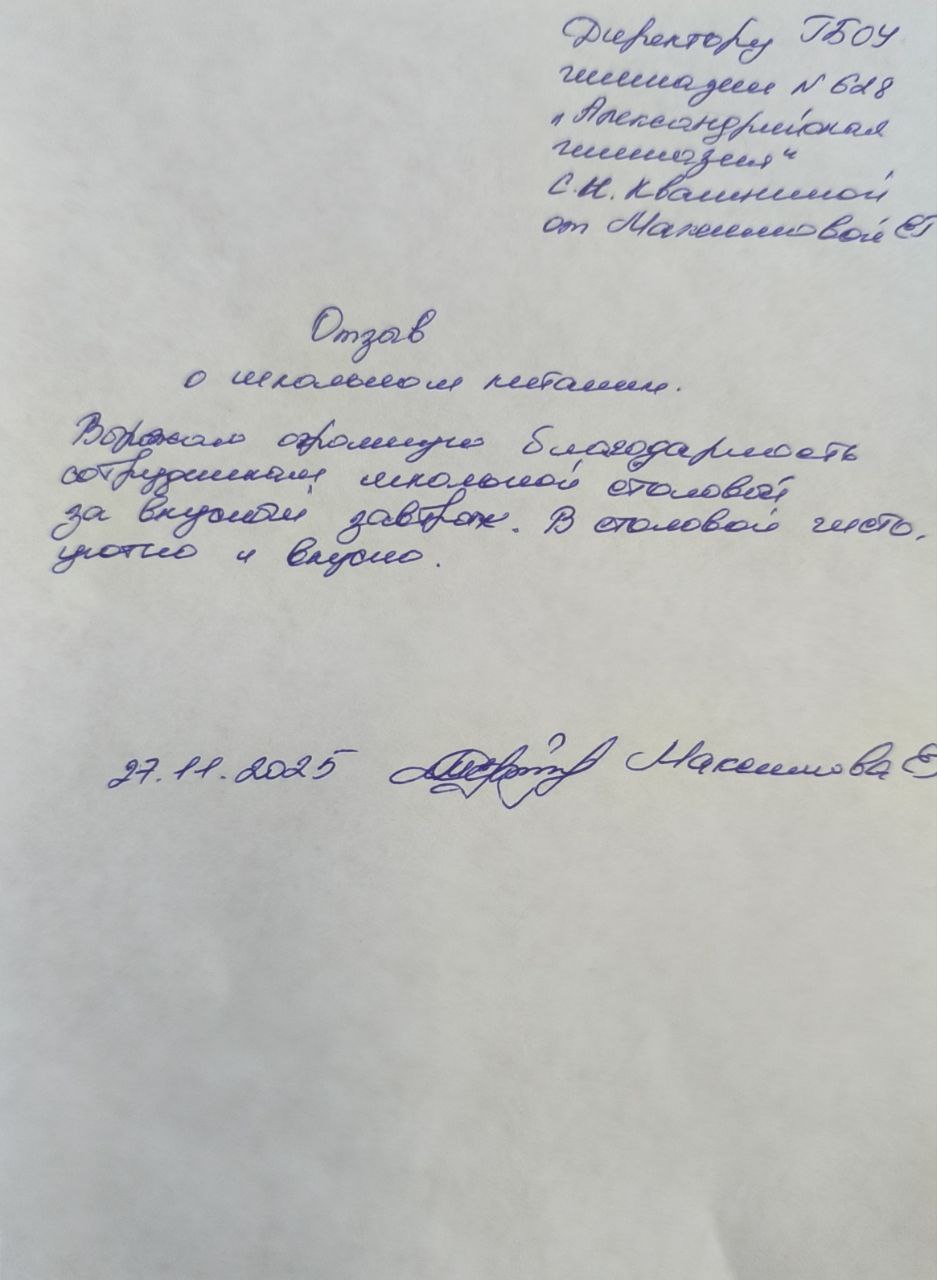 Директору ГБОУ
гимназии N 628
„Александрийская
гимназия“
С.Н. Квашниной
от Максимовой ЕГ
Отзыв
о школьном питании.
Выражаю огромную благодарность
сотрудникам школьной столовой
за вкусный завтрак. В столовой чисто,
уютно и вкусно.
27.11.2025 Максимова Е